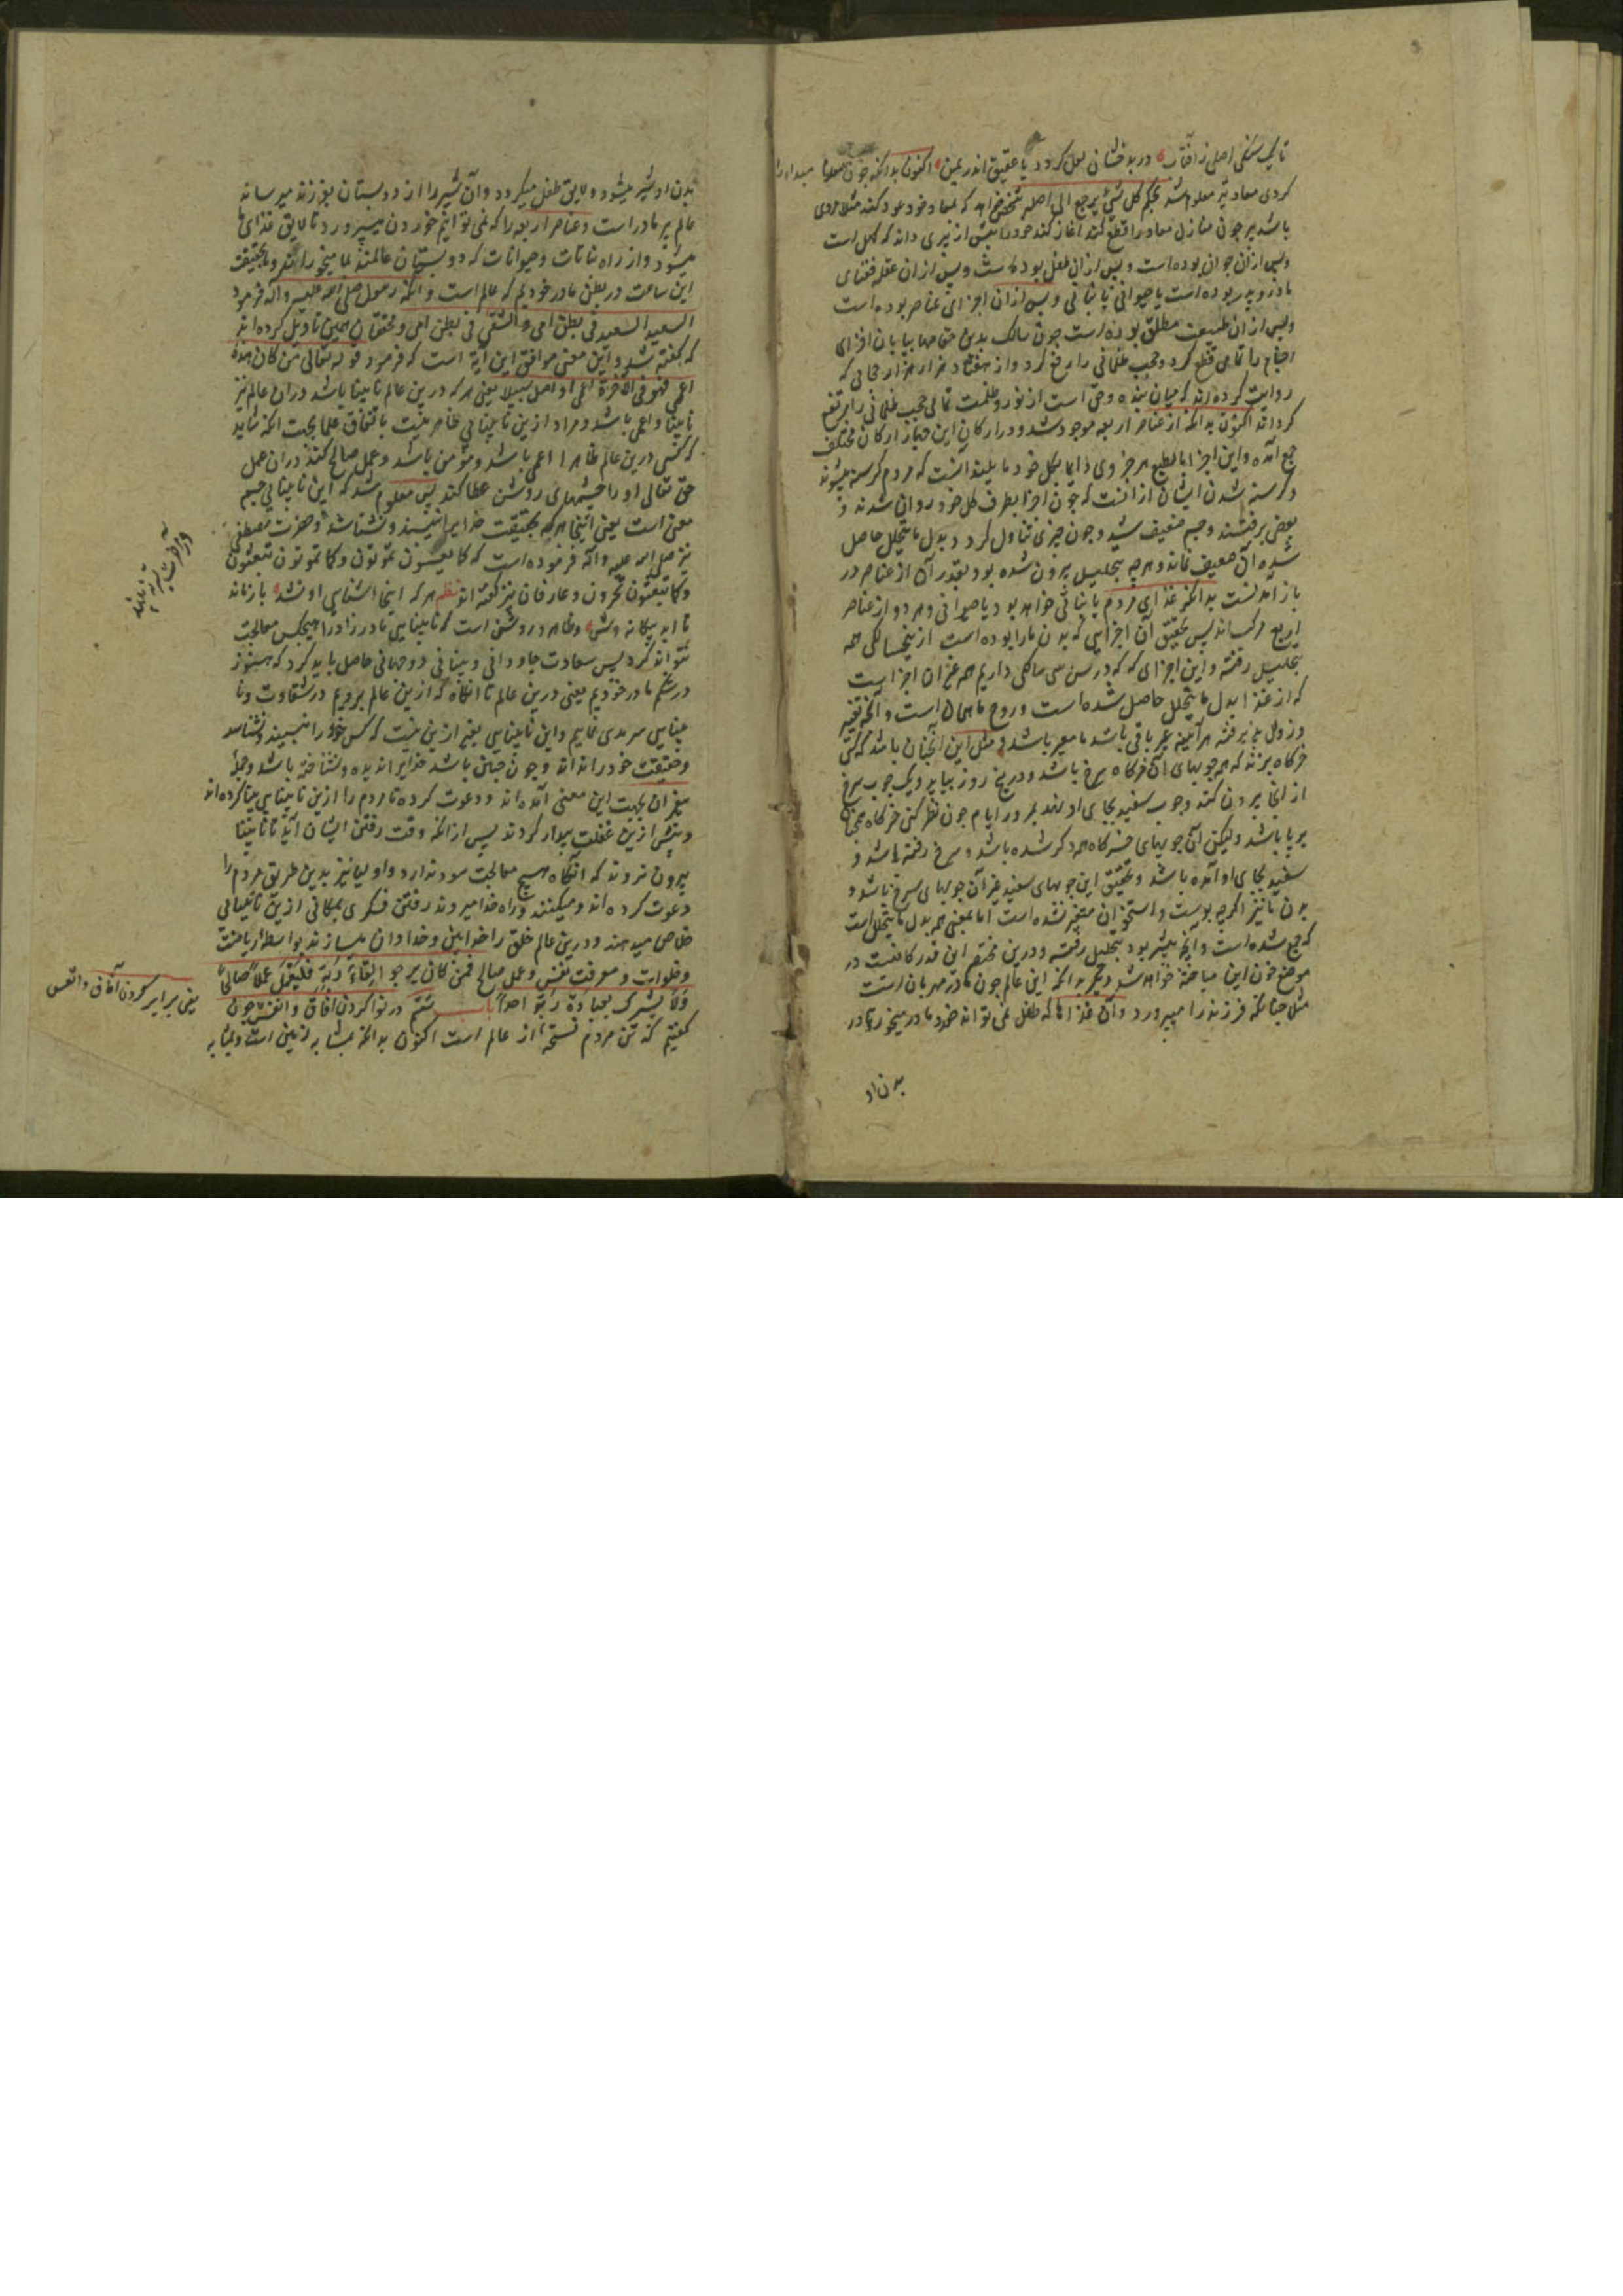 تا یک سنگی اصلی ز آفتاب در بدخشان لعل گردد یا عقیق اندر یمن اکنون بدانکه چون معلوم مبدا را
کردی معاد نیز معلوم شد بحکم کل شیٔ یرجع الی اصله شخص خواهد که بمعاد خود عود کند مثلا مردی
باشد پیر چون منازل معاد را قطع کند آغاز کند خود را پیش از پیری داند که کهل است
وپس ازان جوان بوده است وپس ازان طفل بوده است وپس ازان علقه
یا حیوانی یا نباتی وپس ازان اجزای عناصر بوده است
وپس ازان طبیعت مطلق بوده است چون سالک بدین مقامها بپایان اجزای
اجتماع را تمامی قطع کرد وحجب ظلمانی را رفع کرد واز هفتاد هزار هزار حجابی که
روایت کرده اند که میان بنده وحق است از نور وظلمت تمامی حجب ظلمانی را مرتفع
کرداند اکنون بدانکه از عناصر اربعه موجود شد ودر ارکان این چهار ارکان مختلف
جمع آمده واین اجزا بالطبع هر جزوی دایما بکل خود مایلند آنست که مردم کرسنه میشوند
وکرسنه شدن ایشان ازانست که چون اجزا بطرف کل خود روان شدند و
بعضی برفتند وجسم ضعیف شد وچون چیزی تناول کرد وبدل ما یتحلل حاصل
شد آن ضعیف نماند وهرچه بتحلیل بیرون شده بود بقدر آن از عناصر در
باز آمد نسبت بدانکه غذای مردم یا نباتی خواهد بود یا حیوانی وهر دو از عناصر
اربع مرکب اند پس بتحقیق آن اجزایی که بدن ما را بوده است از پنجسالکی همه
بتحلیل رفته واین اجزای که در سن سی سالکی داریم همه غیر آن اجزا است
که از غذا بدل ما یتحلل حاصل شده است وروح ما همان است وآنکه تغیر
وزوال نپذیرفته هر آینه باقی باشد ومثل این آنچنان باشد که کسی
خرکاه بزند که همه چوبهای آن خرکاه سرخ باشد ودر پنج روز بیاید ویک چوب سرخ
از آنجا بیرون کند وچوب سفید بجای او نهد بمرور ایام چون نظر کنی خرکاه همچنان
برپا باشد ولیکن آن چوبهای خرکاه همه دکر شده باشد وسرخ رفته باشد و
سفید بجای او آمده باشد وبتحقیق این چوبهای سفید غیر آن چوبهای سرخ باشد و
بدن ما نیز اکرچه پوست واستخوان متغیر نشده است اما بمعنی همه بدل ما یتحلل است
که جمع شده است وآنچه پیشتر بود بتحلیل رفته ودرین مختصر این قدر کافیست در
موضع خون این مباحثه خواهد شد دیکر بدانکه این عالم چون مادر مهربان است
مثلا چنانکه فرزند را میپرورد وآن غذاها که طفل نمی تواند خورد مادر میخورد تا در
بدن او
بدن او شیر میشود ولایق طفل میکردد وآن شیر را از دو پستان بفرزند میرساند
عالم نیز مادر است وعناصر اربعه را که نمی توانیم خوردن میپرورد تا لایق غذای ما
میشود واز راه نباتات وحیوانات که دو پستان عالمند بما میخوراند وما بحقیقت
این ساعت در بطن مادر خودیم که عالم است وآنکه رسول صلی الله علیه وآله فرمود
السعید السعید فی بطن امه والشقی فی بطن امه ومحققان همین تاویل کرده اند
که کفته شد واین معنی موافق این آیه است که فرمود قوله تعالی من کان هذه
اعمی فهو فی الآخرة اعمی واضل سبیلا یعنی هر که درین عالم نابینا باشد دران عالم نیز
نابینا واعمی باشد ومراد ازین نابینایی ظاهر نیست باتفاق علما بجهت آنکه شاید
که کسی درین عالم ظاهرا اعمی باشد ومؤمن باشد وعمل صالح کند دران عمل
حق تعالی او را چشمهای روشن عطا کند پس معلوم شد که این نابینایی چشم
معنی است یعنی اینجا هر که بحقیقت خدایرا نبیند ونشناسد وحضرت مصطفی
نیز صلی الله علیه وآله فرموده است که کما تعیشون تموتون وکما تموتون تبعثون
وکما تبعثون تحشرون وعارفان نیز کفته اند نظم هر که اینجا آشنای او نشد باز ماند
تا ابد بیکانه وش وظاهر وروشن است که نابینایی مادرزاد را هیچکس معالجت
نتواند کرد پس سعادت جاودانی وبینایی دوجهانی حاصل باید کرد که هنوز
در شکم مادر خودیم یعنی درین عالم تا آنکاه که ازین عالم برویم در شقاوت ونا
بینایی سرمدی نمانیم واین نابینایی بغیر ازین نیست که کسی خود را نبیند ونشناسد
وحقیقت خود را نداند وچون چنین باشد خدایرا ندیده ونشناخته باشد وجمله
پیغمبران بجهت این معنی آمده اند ودعوت کرده تا مردم را ازین نابینایی بینا کرده اند
وپیش ازین غفلت بیدار کردند پس از آنکه وقت رفتن ایشان آید تا نابینا
بیرون نروند که آنکاه هیچ معالجت سود ندارد واولیا نیز بدین طریق مردم را
دعوت کرده اند ومیکنند وراه خدا میروند رفتن فکری بمکانی ازین نابینایی
خلاص میدهند ودرین عالم خلق را خدابین وخدادان میسازند بواسطه ریاضت
وخلوات ومعرفت نفس وعمل صالح فمن کان یرجو لقاء ربه فلیعمل عملا صالحا
ولا یشرک بعبادة ربه احدا باب ششم در نوا کردن آفاق وانفس چون
کفتیم که تن مردم نسخه از عالم است اکنون بدانکه بمشابه زمین است وبمثابه
ودر آخرت
یعنی برابر کردن آفاق وانفس